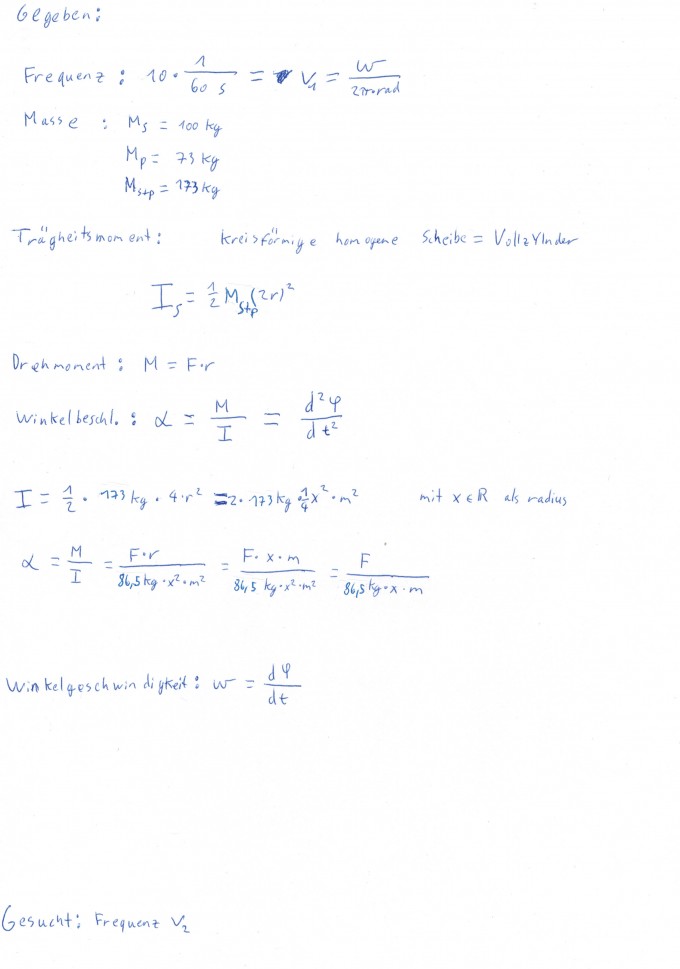 Gegeben:
Frequenz : 10 · 1/(60 s) = ν₁ = w/(2π·rad)
Masse : M_S = 100 kg
M_p = 73 kg
M_S+p = 173 kg
Trägheitsmoment: kreisförmige homogene Scheibe = VollzYlnder
I_S = 1/2 M_S+p (2r)²
Drehmoment : M = F·r
Winkelbeschl. : α = M/I = d²φ/dt²
I = 1/2 · 173 kg · 4·r² = 2 · 173 kg · 1/4 x² · m² mit x ∈ ℝ als radius
α = M/I = F·r/(86,5 kg · x² · m²) = F · x · m/(86,5 kg · x² · m²) = F/(86,5 kg · x · m)
Winkelgeschwindigkeit : w = dφ/dt
Gesucht: Frequenz ν₂